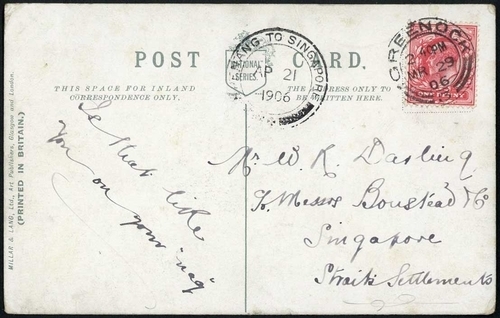 POST CARD.
NATIONAL SERIES
THIS SPACE FOR INLAND
CORRESPONDENCE ONLY.
THE ADDRESS ONLY TO
BE WRITTEN HERE.
ANG TO SINGAPORE
AP 21
1906
GREENOCK
MR 29
06
MILLAR & LANG, Ltd., Art Publishers, Glasgow and London.
(PRINTED IN BRITAIN.)
Is that like
you on your "nag"
Mr W. K. Darling
Messrs Boustead & Co
Singapore
Straits Settlements